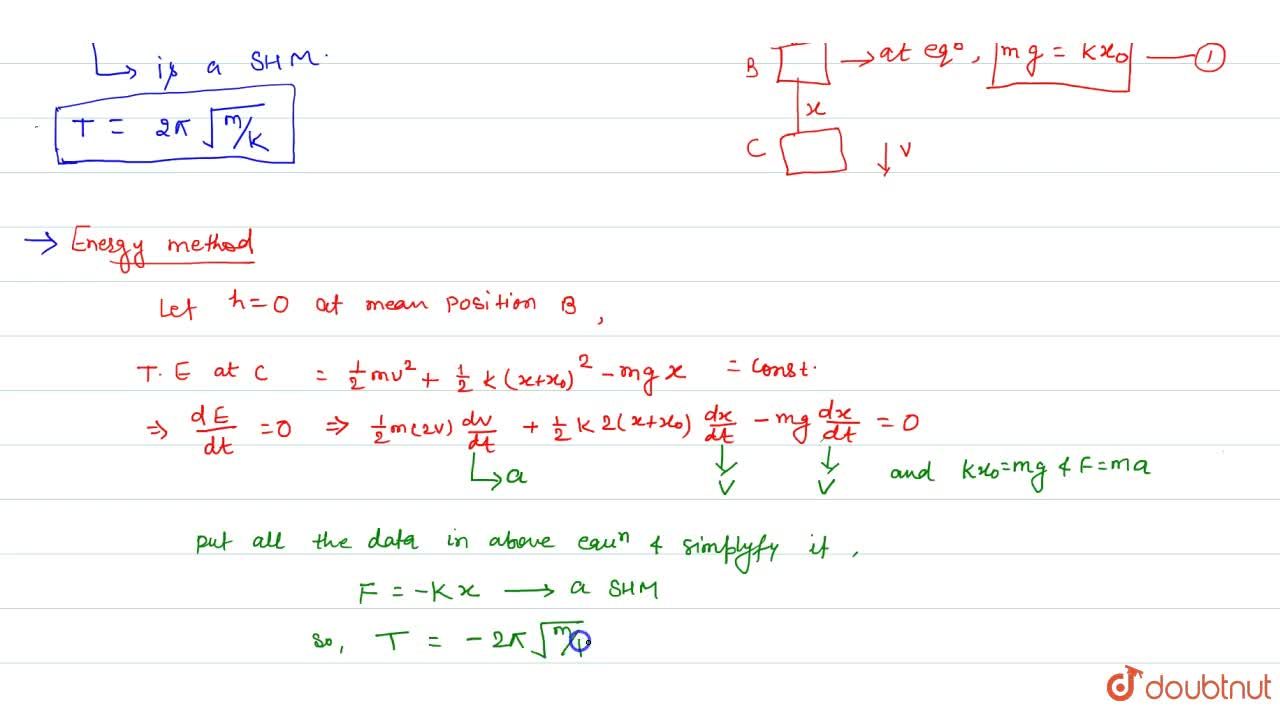 is a SHM.
T = 2π √m/K
B → at eqⁿ, mg = Kx₀ — ①
x
C ↓ v
→ Energy method
Let h=0 at mean position B,
T.E at C = 1/2 mv² + 1/2 K(x+x₀)² - mgx = Const.
⇒ dE/dt = 0 ⇒ 1/2 m(2v) dv/dt + 1/2 K 2(x+x₀) dx/dt - mg dx/dt = 0
↳ a ↓ v ↓ v and Kx₀=mg & F=ma
put all the data in above equⁿ & simplyfy it,
F = -Kx → a SHM
So, T = - 2π √m/
doubtnut